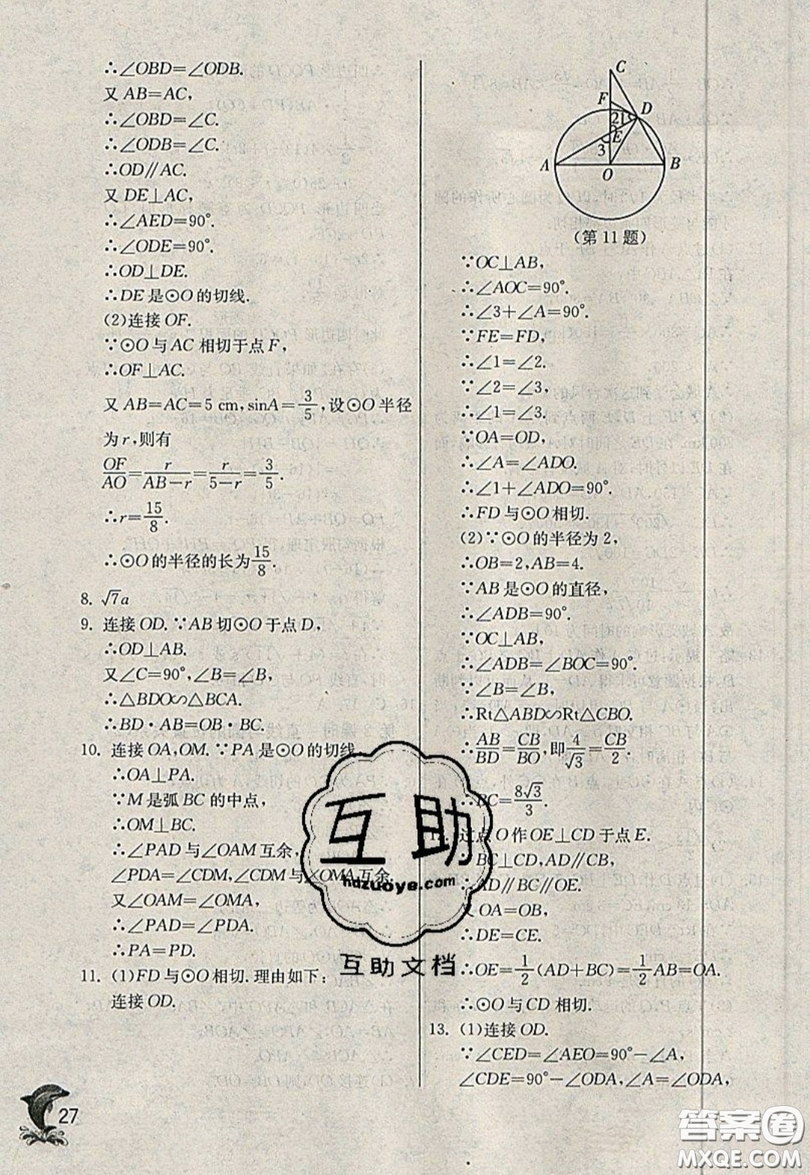 ∴∠OBD=∠ODB.
又 AB=AC,
∴∠OBD=∠C.
∴∠ODB=∠C.
∴OD∥AC.
又 DE⊥AC,
∴∠AED=90°.
∴∠ODE=90°.
∴OD⊥DE.
∴DE是⊙O的切线.
(2)连接OF.
∵⊙O与AC相切于点F,
∴OF⊥AC.
又 AB=AC=5 cm,sinA=3/5,设⊙O半径
为r,则有
OF/AO=r/(AB-r)=r/(5-r)=3/5.
∴r=15/8.
∴⊙O的半径的长为15/8.
8. √7a
9. 连接OD.∵AB切⊙O于点D,
∴OD⊥AB.
又∠C=90°,∠B=∠B,
∴△BDO∽△BCA.
∴BD·AB=OB·BC.
10. 连接OA,OM.∵PA是⊙O的切线
∴OA⊥PA.
∵M是弧BC的中点,
∴OM⊥BC.
∴∠PAD与∠OAM互余,
∠PDA=∠CDM,∠CDM与∠OMA互余
又∠OAM=∠OMA,
∴∠PAD=∠PDA.
∴PA=PD.
11. (1)FD与⊙O相切.理由如下:
连接OD.
27
C
F
D
2 1
E
3
A
O
B
(第11题)
∵OC⊥AB,
∴∠AOC=90°.
∴∠3+∠A=90°.
∵FE=FD,
∴∠1=∠2.
∵∠2=∠3,
∴∠1=∠3.
∵OA=OD,
∴∠A=∠ADO.
∴∠1+∠ADO=90°.
∴FD与⊙O相切.
(2)∵⊙O的半径为2,
∴OB=2,AB=4.
∵AB是⊙O的直径,
∴∠ADB=90°.
∵OC⊥AB,
∴∠ADB=∠BOC=90°.
∵∠B=∠B,
∴Rt△ABD∽Rt△CBO.
∴AB/BD=CB/BO,即4/√3=CB/2.
∴BC=8√3/3.
12. 过点O作OE⊥CD于点E.
BC⊥CD,AD∥BC,
∴AD∥BC∥OE.
又OA=OB,
∴DE=CE.
∴OE=1/2(AD+BC)=1/2AB=OA.
∴⊙O与CD相切.
13. (1)连接OD.
∵∠CED=∠AEO=90°-∠A,
∠CDE=90°-∠ODA,∠A=∠ODA,
互助
hdzuoye.com
互助文档
答案卷
MXQE.COM